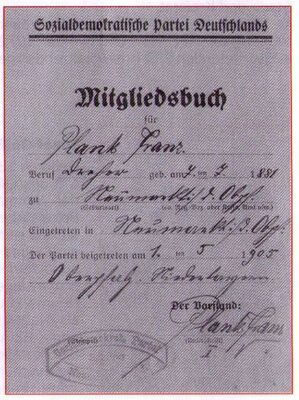 Sozialdemokratische Partei Deutschlands
Mitgliedsbuch
für
Plank Franz.
Beruf Dreher geb. am 4. 7. 1881
zu Neumarkt i. d. Obpf.
(Geburtsort)
Eingetreten in Neumarkt i. d. Obpf.
Der Partei beigetreten am 1. 5. 1905
Oberpfalz-Niederbayern
Der Vorstand:
Plank Franz
(Unterschrift)
I
(Stempel)